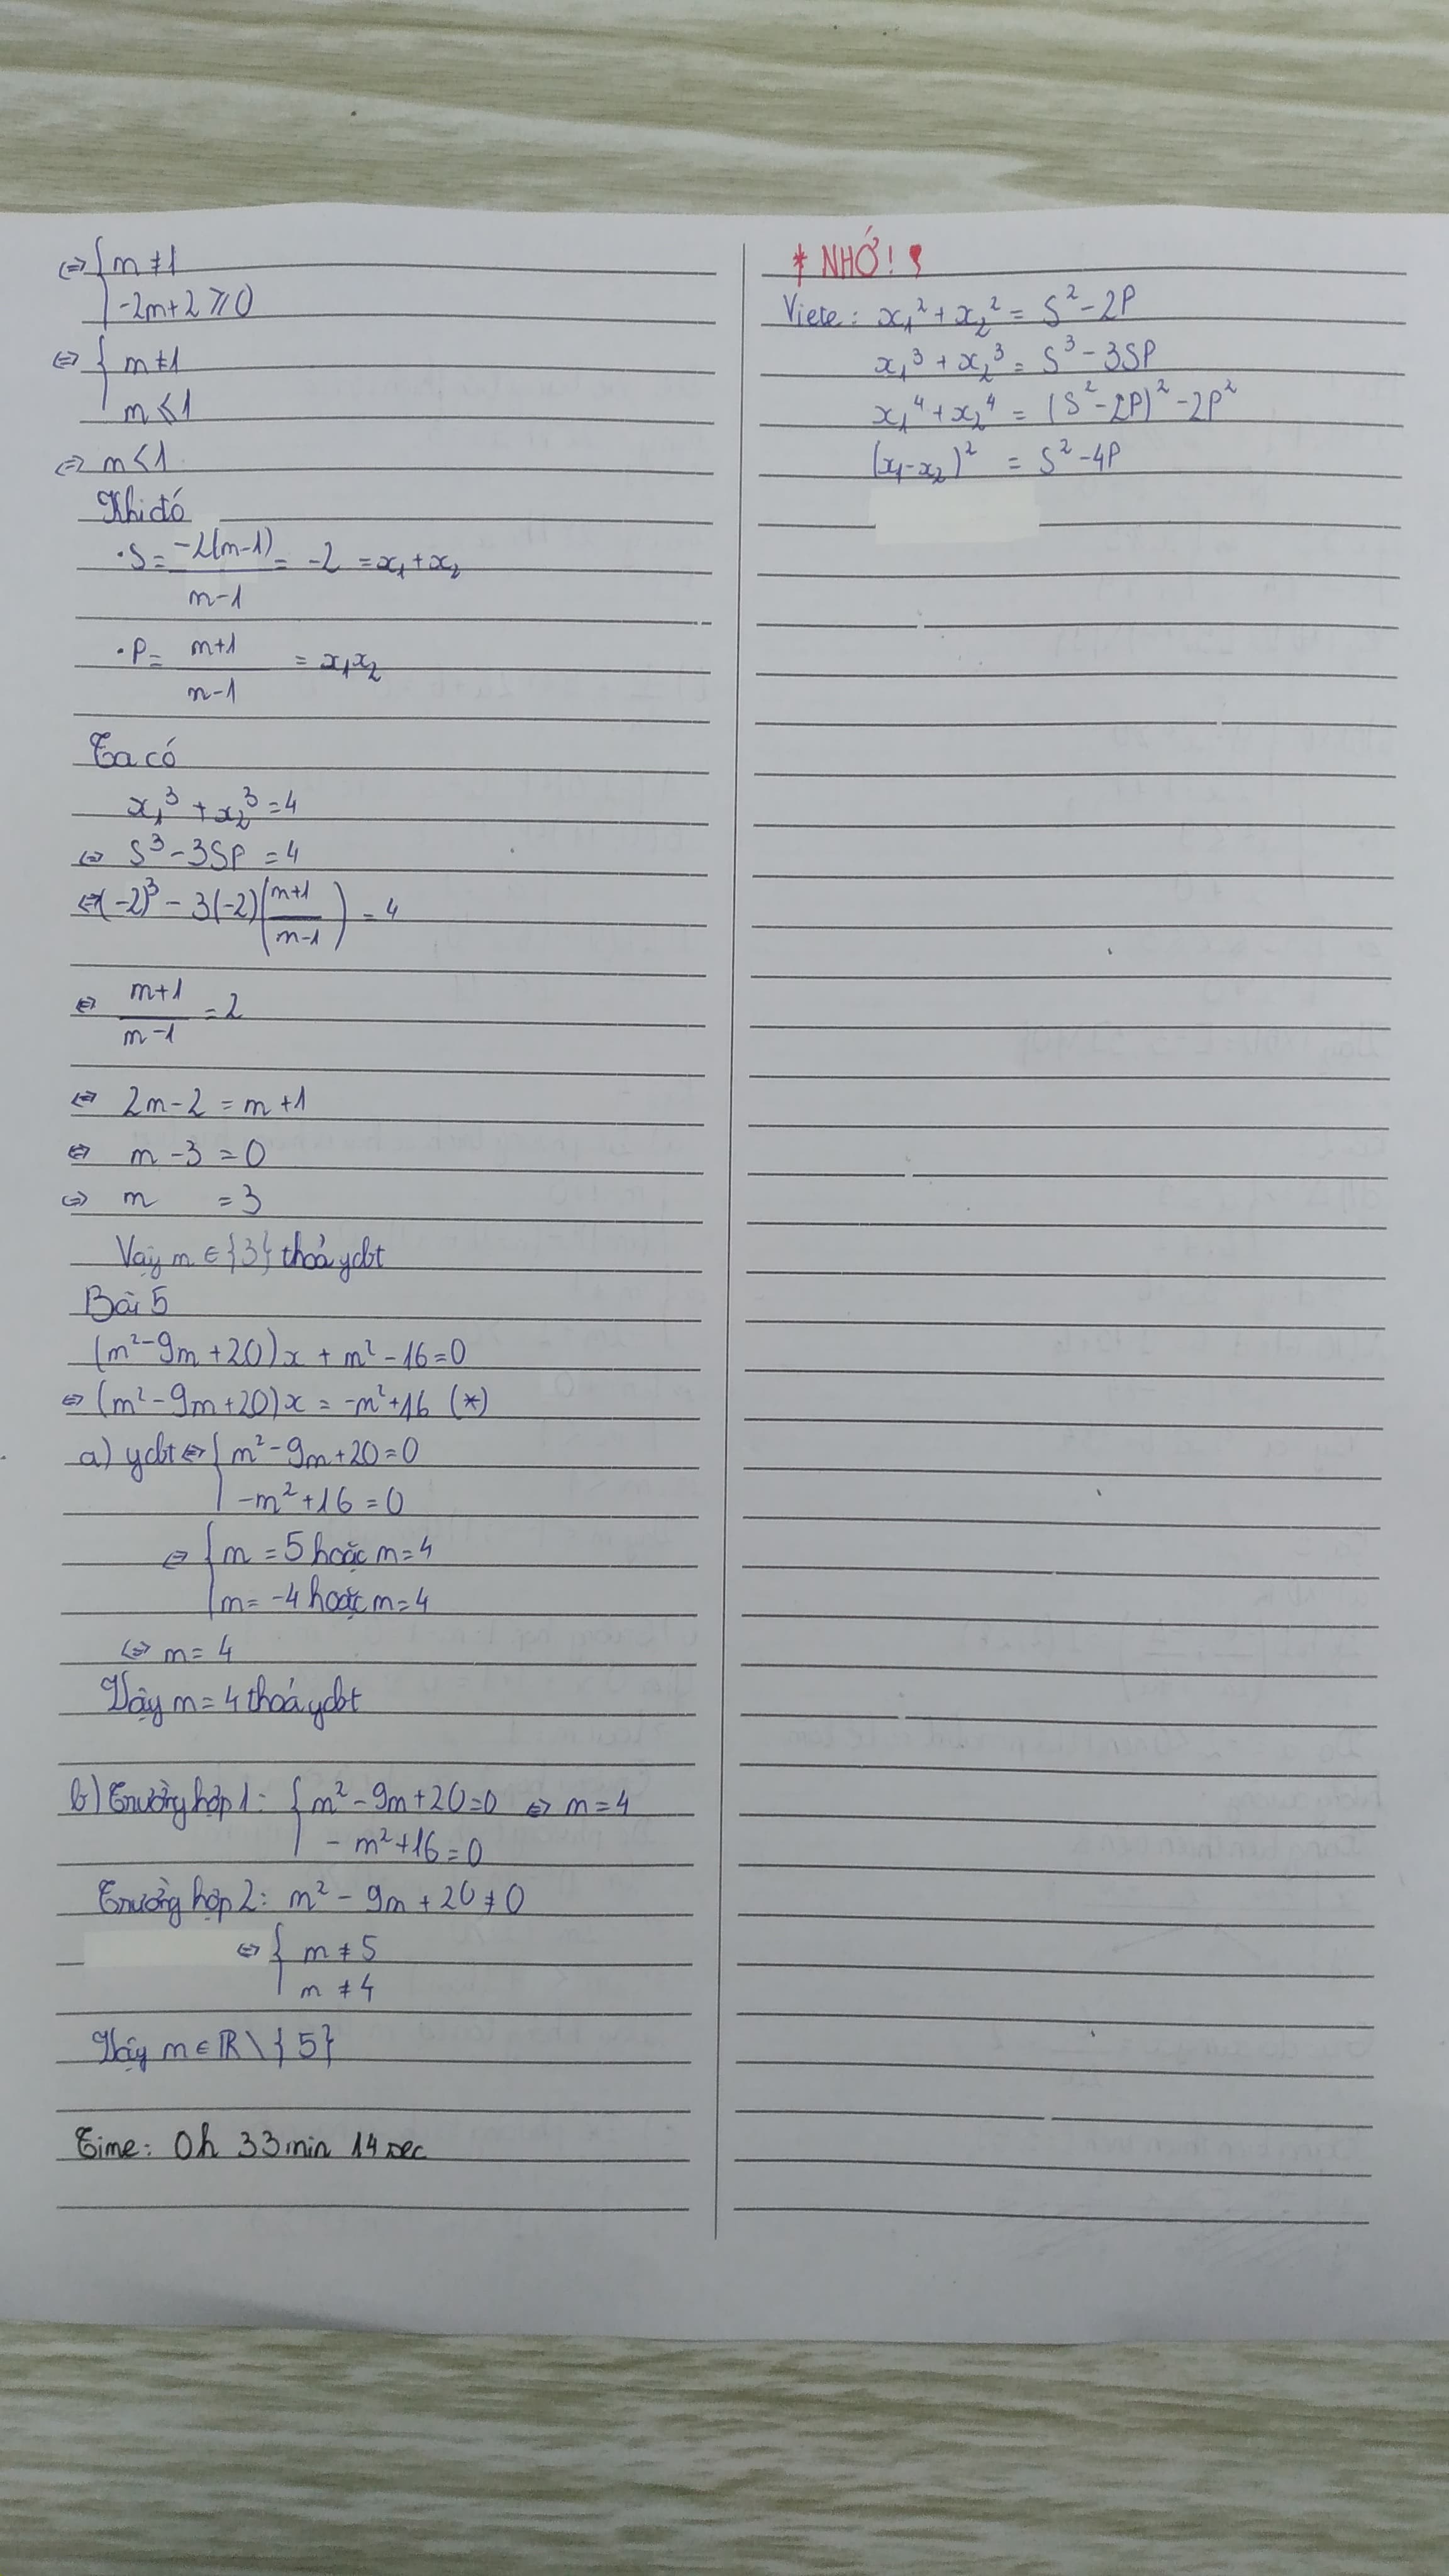 ⇔ { m ≠ 1
-2m+2 ⩾ 0
⇔ { m ≠ 1
m ⩽ 1
⇔ m < 1
Khi đó
• S = -2(m-1) / m-1 = -2 = x₁ + x₂
• P = m+1 / m-1 = x₁x₂
Ta có
x₁³ + x₂³ = 4
⇔ S³ - 3SP = 4
⇔ (-2)³ - 3(-2)(m+1 / m-1) = 4
⇔ m+1 / m-1 = 2
⇔ 2m - 2 = m + 1
⇔ m - 3 = 0
⇔ m = 3
Vậy m ∈ {3} thoả ycbt
Bài 5
(m² - 9m + 20)x + m² - 16 = 0
⇔ (m² - 9m + 20)x = -m² + 16 (*)
a) ycbt ⇔ { m² - 9m + 20 = 0
-m² + 16 = 0
⇔ { m = 5 hoặc m = 4
m = -4 hoặc m = 4
⇔ m = 4
Vậy m = 4 thoả ycbt
b) Trường hợp 1: { m² - 9m + 20 = 0 ⇔ m = 4
- m² + 16 = 0
Trường hợp 2: m² - 9m + 20 ≠ 0
⇔ { m ≠ 5
m ≠ 4
Vậy m ∈ ℝ \ { 5}
Time: 0h 33min 14sec
* NHỚ! !
Viete: x₁² + x₂² = S² - 2P
x₁³ + x₂³ = S³ - 3SP
x₁⁴ + x₂⁴ = (S² - 2P)² - 2P²
(x₁ - x₂)² = S² - 4P